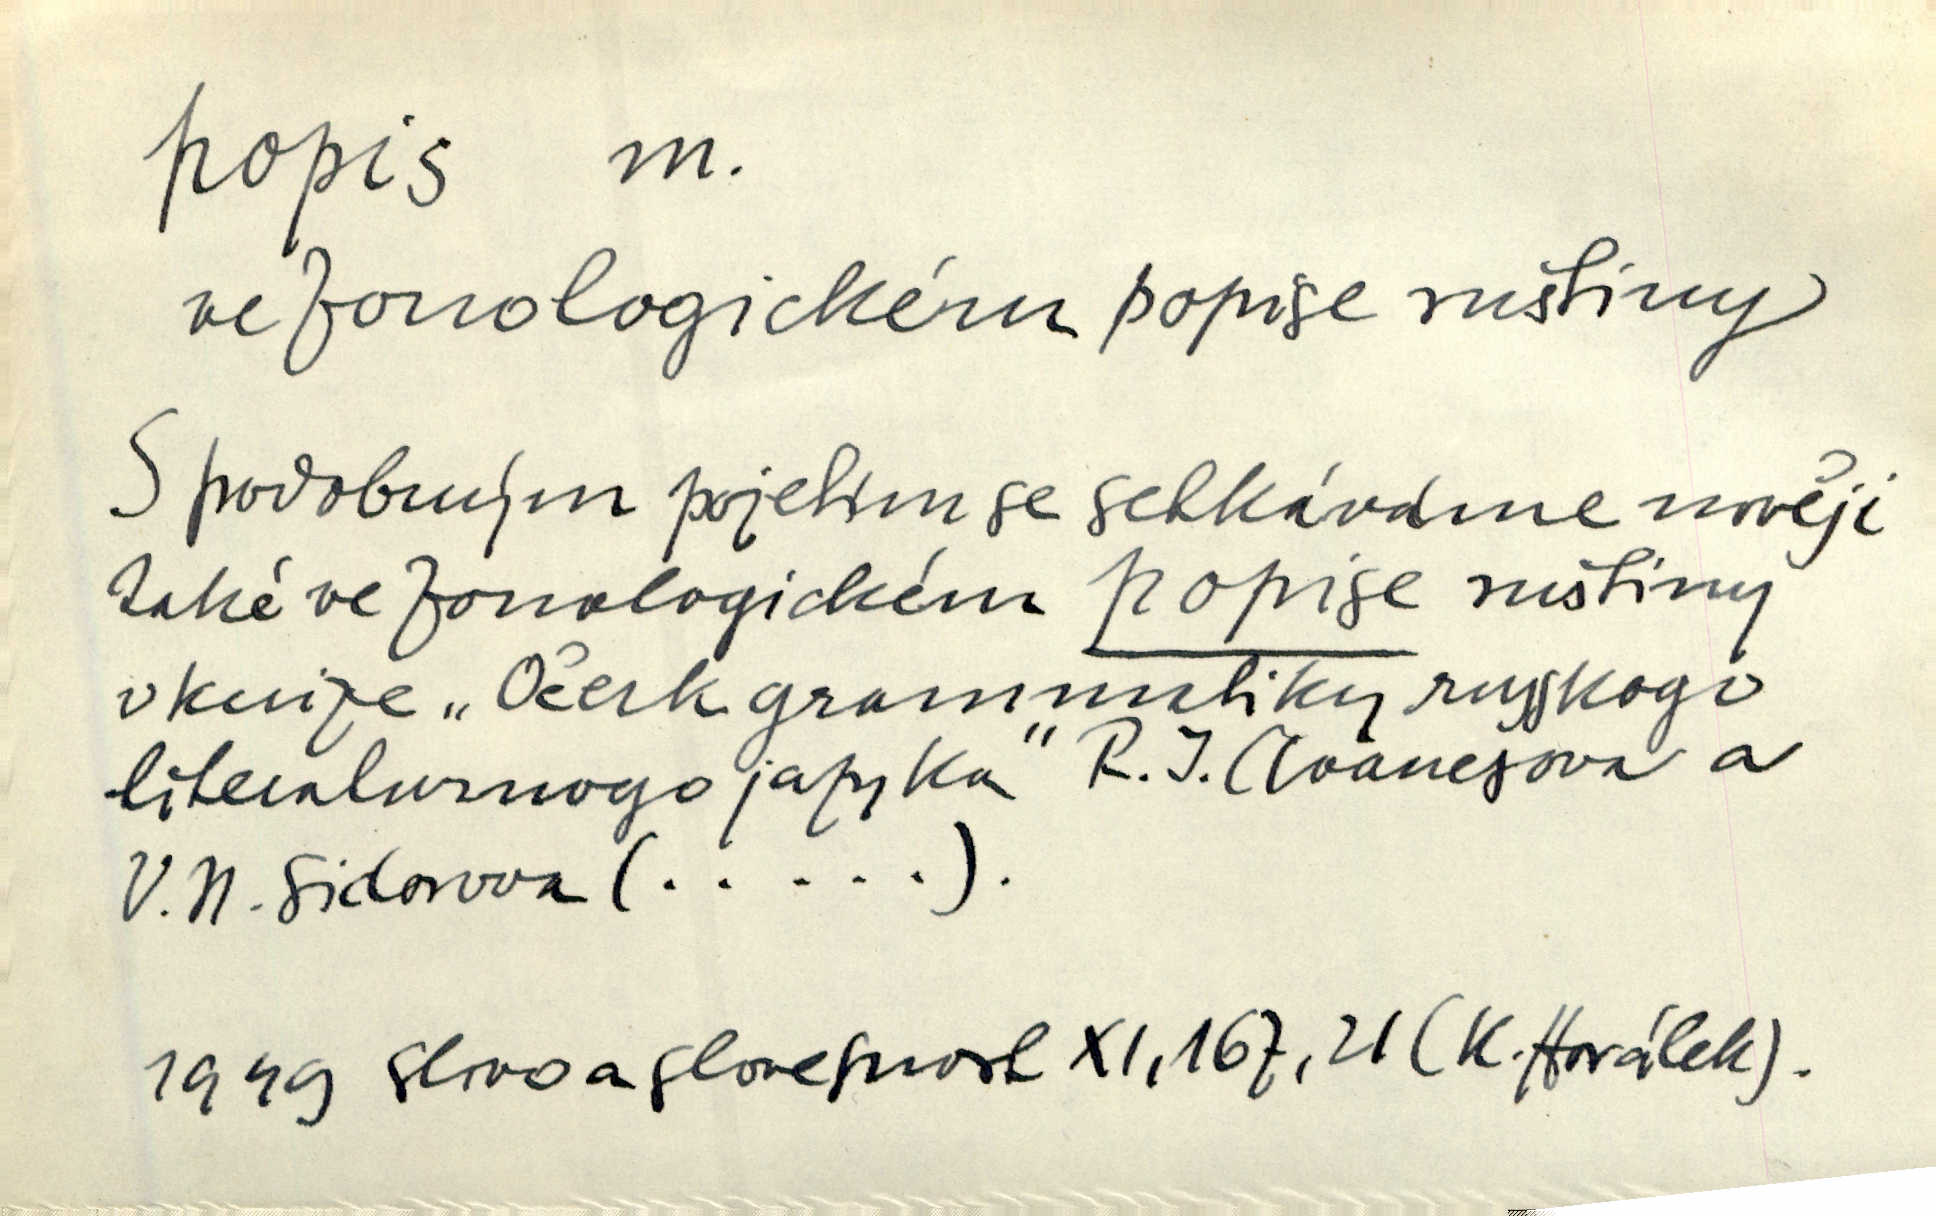 popis m.
ve fonologickém popise ruštiny
S podobným pojetím se setkáváme nověji
také ve fonologickém popise ruštiny
v knize „Očerk grammatiky russkogo
literaturnogo jazyka" R. I. Avanesova a
V. N. Sidorova (. . . . . ).
1949 Slovo a slovesnost XI, 167, 21 (K. Horálek).